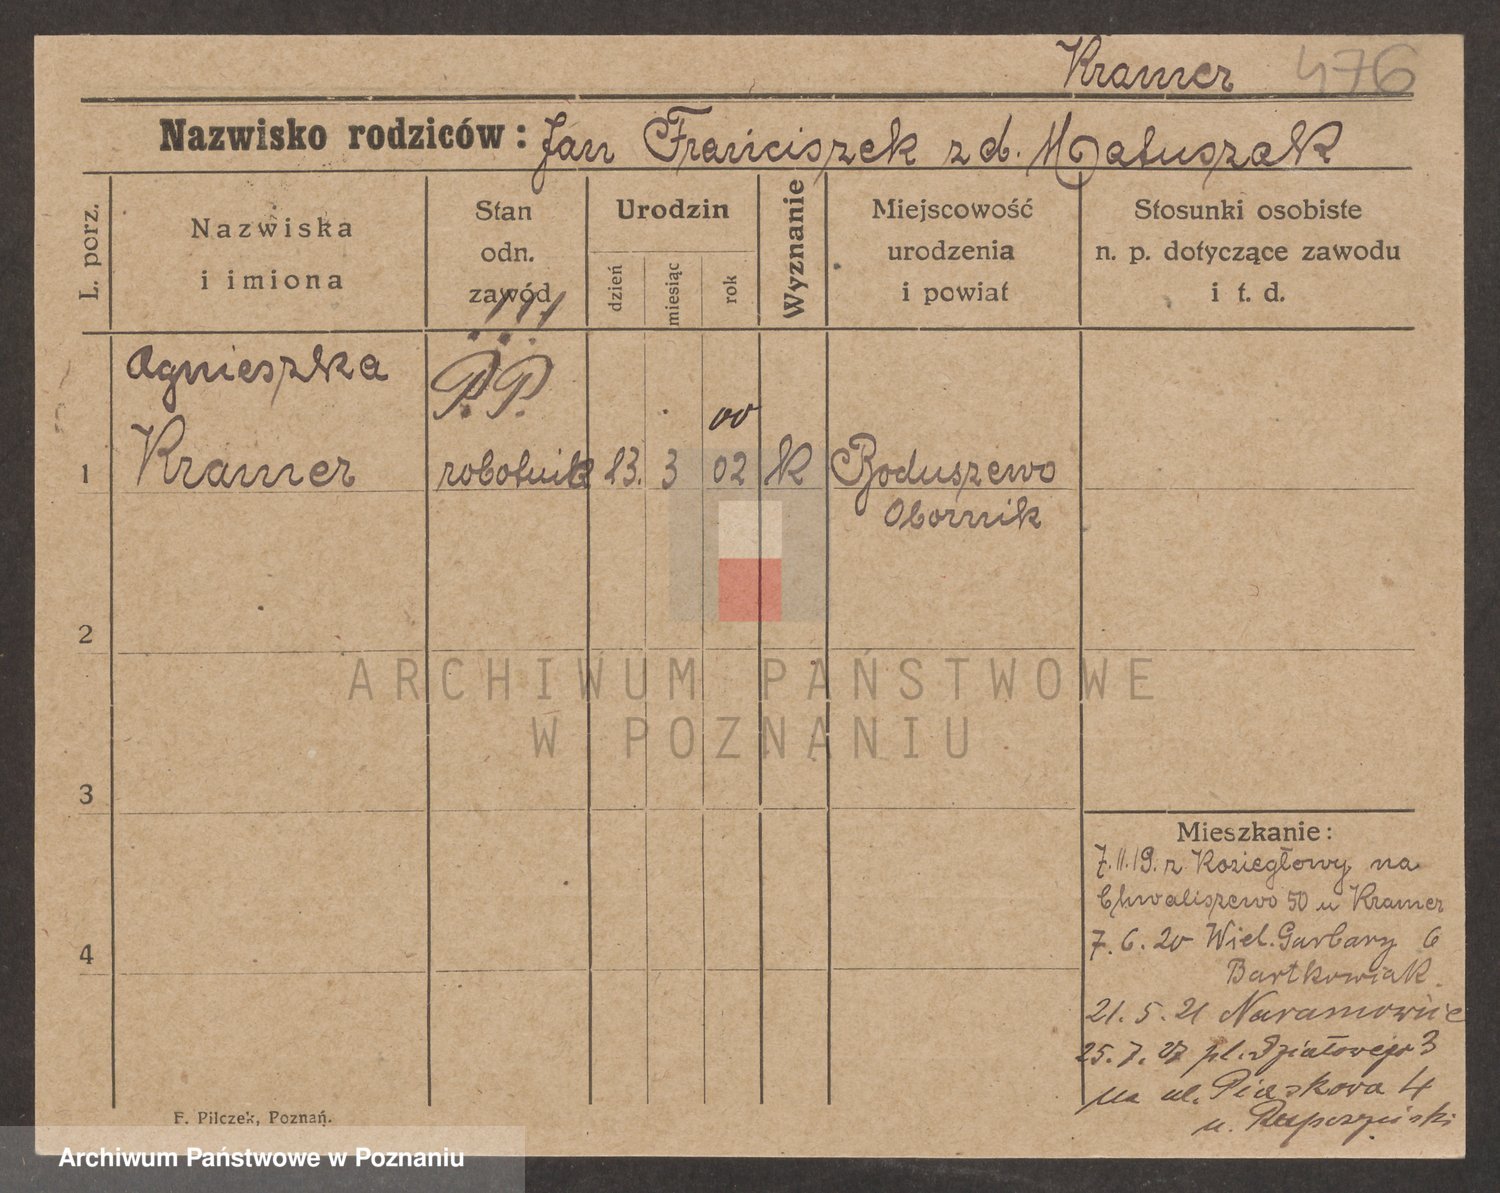 Kramer 476
Nazwisko rodziców: Jan Franciszek z d. Matuszak
L. porz.
Nazwiska
i imiona
Stan
odn.
zawód
Urodzin
dzień
miesiąc
rok
Wyznanie
Miejscowość
urodzenia
i powiat
Stosunki osobiste
n. p. dotyczące zawodu
i t. d.
!!!
Agnieszka P.P.
00
1 Kramer robotnik 13. 3 02 k Boduszewo
Obornik
2
3
4
Mieszkanie:
7.II.19. z Koziegłowy na
Chwaliszewo 50 u Kramer
7.6.20 Wiel. Garbary 6
Bartkowiak.
21.5.21 Naramowice
25.7.27 pl. Działowego 3
na ul. Piaskowa 4
u.
F. Pilczek, Poznań.
ARCHIWUM PAŃSTWOWE
W POZNANIU
Archiwum Państwowe w Poznaniu